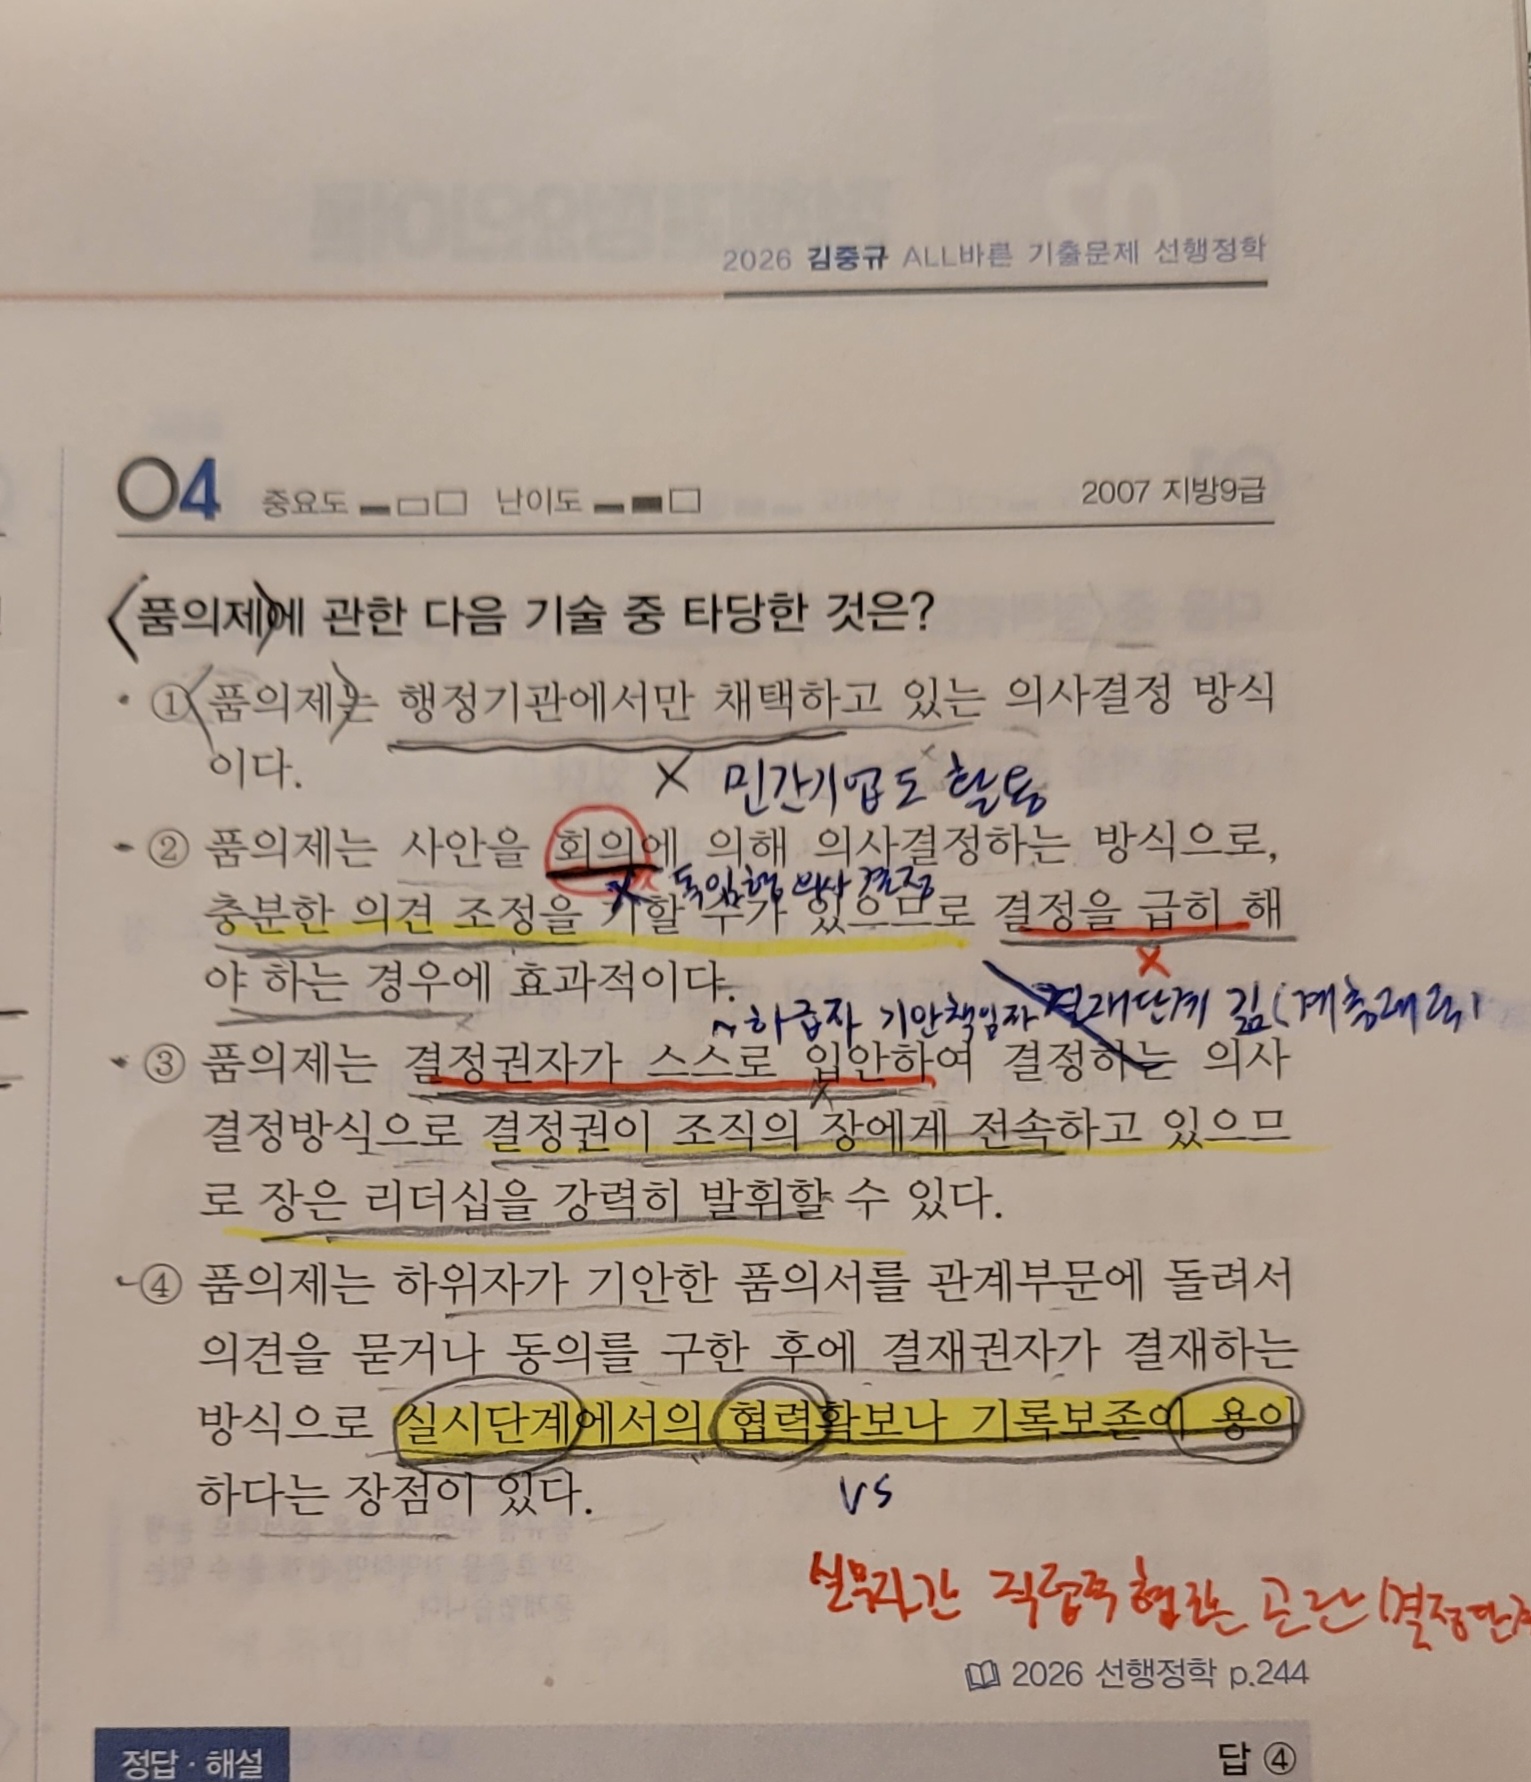 2026 김중규 ALL바른 기출문제 선행정학
04 중요도 난이도 2007 지방9급
품의제에 관한 다음 기술 중 타당한 것은?
① 품의제는 행정기관에서만 채택하고 있는 의사결정 방식
이다.
X 민간기업도 활용
② 품의제는 사안을 회의에 의해 의사결정하는 방식으로,
X 독임형 의사결정
충분한 의견 조정을 기할 수가 있으므로 결정을 급히 해
X
야 하는 경우에 효과적이다.
~하급자 기안책임자 결재단계 김(계층
③ 품의제는 결정권자가 스스로 입안하여 결정하는 의사
X
결정방식으로 결정권이 조직의 장에게 전속하고 있으므
로 장은 리더십을 강력히 발휘할 수 있다.
④ 품의제는 하위자가 기안한 품의서를 관계부문에 돌려서
의견을 묻거나 동의를 구한 후에 결재권자가 결재하는
방식으로 실시단계에서의 협력확보나 기록보존이 용이
하다는 장점이 있다.
vs
실무자간 협조는 곤란(결정단계
2026 선행정학 p.244
정답·해설 답 ④